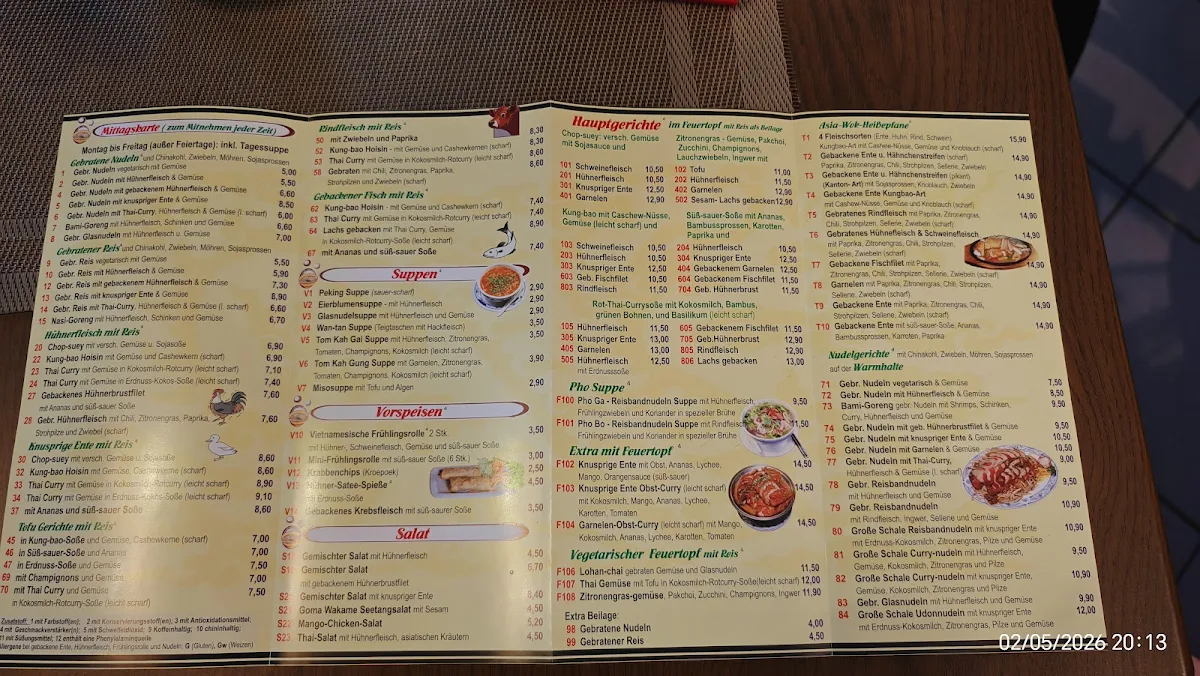 Mittagskarte (zum Mitnehmen jeder Zeit)
Montag bis Freitag (außer Feiertage): inkl. Tagessuppe
Gebratene Nudeln und Chinakohl, Zwiebeln, Möhren, Sojasprossen
1 Gebr. Nudeln vegetarisch mit Gemüse 5,00
2 Gebr. Nudeln mit Hühnerfleisch & Gemüse 5,50
4 Gebr. Nudeln mit gebackenem Hühnerfleisch & Gemüse 6,60
5 Gebr. Nudeln mit knuspriger Ente & Gemüse 8,50
6 Gebr. Nudeln mit Thai-Curry, Hühnerfleisch & Gemüse (l. scharf) 6,00
7 Bami-Goreng mit Hühnerfleisch, Schinken und Gemüse 6,60
8 Gebr. Glasnudeln mit Hühnerfleisch u. Gemüse 7,00
Gebratener Reis und Chinakohl, Zwiebeln, Möhren, Sojasprossen
9 Gebr. Reis vegetarisch mit Gemüse 5,50
10 Gebr. Reis mit Hühnerfleisch & Gemüse 5,90
12 Gebr. Reis mit gebackenem Hühnerfleisch & Gemüse 7,30
13 Gebr. Reis mit knuspriger Ente & Gemüse 8,90
14 Gebr. Reis mit Thai-Curry, Hühnerfleisch & Gemüse (l. scharf) 6,60
15 Nasi-Goreng mit Hühnerfleisch, Schinken und Gemüse 6,70
Hühnerfleisch mit Reis
20 Chop-suey mit versch. Gemüse u. Sojasoße 6,90
22 Kung-bao Hoisin mit Gemüse und Cashewkernen (scharf) 6,90
23 Thai Curry mit Gemüse in Kokosmilch-Rotcurry (leicht scharf) 7,10
24 Thai Curry mit Gemüse in Erdnuss-Kokos-Soße (leicht scharf) 7,40
27 Gebackenes Hühnerbrustfilet 7,60
mit Ananas und süß-saurer Soße
28 Gebr. Hühnerfleisch mit Chili, Zitronengras, Paprika, 7,60
Strohpilze und Zwiebel (scharf)
Knusprige Ente mit Reis
30 Chop-suey mit versch. Gemüse u. Sojasoße 8,60
32 Kung-bao Hoisin mit Gemüse, Cashewkerne (scharf) 8,60
33 Thai Curry mit Gemüse in Kokosmilch-Rotcurry (leicht scharf) 8,90
34 Thai Curry mit Gemüse in Erdnuss-Kokos-Soße (leicht scharf) 9,10
37 mit Ananas und süß-saurer Soße 8,60
Tofu Gerichte mit Reis
45 in Kung-bao-Soße und Gemüse, Cashewkerne (scharf) 7,00
46 in Süß-sauer-Soße und Ananas 7,00
47 in Erdnuss-Soße und Gemüse 7,50
69 mit Champignons und Gemüse 7,00
70 mit Thai Curry und Gemüse 7,50
in Kokosmilch-Rotcurry-Soße (leicht scharf)
Zusatzstoff: 1 mit Farbstoff(en), 2 mit Konservierungsstoff(en), 3 mit Antioxidationsmittel,
4 mit Geschmackverstärker(n), 5 mit Schwefeldioxid, 9 Koffeinhaltig, 10 chininhaltig,
11 mit Süßungsmittel, 12 enthält eine Phenylalaninquelle
Allergene bei gebackene Ente, Hühnerfleisch, Frühlingsrolle und Nudeln: G (Gluten), Gw (Weizen)
Rindfleisch mit Reis
50 mit Zwiebeln und Paprika 8,30
52 Kung-bao Hoisin - mit Gemüse und Cashewkernen (scharf) 8,30
53 Thai Curry mit Gemüse in Kokosmilch-Rotcurry (leicht scharf) 8,60
58 Gebraten mit Chili, Zitronengras, Paprika, 8,60
Strohpilzen und Zwiebeln (scharf)
Gebackener Fisch mit Reis
62 Kung-bao Hoisin - mit Gemüse und Cashewkerne (scharf) 7,40
63 Thai Curry mit Gemüse in Kokosmilch-Rotcurry (leicht scharf) 7,40
64 Lachs gebacken mit Thai Curry, Gemüse 8,90
in Kokosmilch-Rotcurry-Soße (leicht scharf)
67 mit Ananas und süß-sauer Soße 7,40
Suppen
V1 Peking Suppe (sauer-scharf) 2,90
V2 Eierblumensuppe - mit Hühnerfleisch 2,90
V3 Glasnudelsuppe mit Hühnerfleisch 2,90
V4 Wan-tan Suppe (Teigtaschen mit Hackfleisch) 3,50
V5 Tom Kah Gai Suppe mit Hühnerfleisch, Zitronengras, 3,50
Tomaten, Champignons, Kokosmilch (leicht scharf)
V6 Tom Kah Gung Suppe mit Garnelen, Zitronengras, 3,90
Tomaten, Champignons, Kokosmilch (leicht scharf)
V7 Misosuppe mit Tofu und Algen 2,90
Vorspeisen
V10 Vietnamesische Frühlingsrolle 2 Stk. 3,50
mit Hühner-, Schweinefleisch, Gemüse und süß-sauer Soße
V11 Mini-Frühlingsrolle mit süß-sauer Soße (6 Stk.) 3,00
V12 Krabbenchips (Kroepoek) 2,50
Hühner-Satee-Spieße 4,50
mit Erdnuss-Soße
Gebackenes Krebsfleisch mit süß-saurer Soße 3,50
Salat
Gemischter Salat mit Hühnerfleisch 4,50
Gemischter Salat 6,70
mit gebackenem Hühnerbrustfilet
Gemischter Salat mit knuspriger Ente 8,40
Goma Wakame Seetangsalat mit Sesam 4,50
S22 Mango-Chicken-Salat 5,20
S23 Thai-Salat mit Hühnerfleisch, asiatischen Kräutern 4,50
Hauptgerichte im Feuertopf mit Reis als Beilage
Chop-suey: versch. Gemüse
mit Sojasauce und
101 Schweinefleisch 10,50
201 Hühnerfleisch 10,50
301 Knuspriger Ente 12,50
401 Garnelen 12,90
Zitronengras - Gemüse, Pakchoi,
Zucchini, Champignons,
Lauchzwiebeln, Ingwer mit
102 Tofu 11,00
202 Hühnerfleisch 11,50
402 Garnelen 12,90
502 Sesam- Lachs gebacken 12,90
Kung-bao mit Caschew-Nüsse,
Gemüse (leicht scharf) und
103 Schweinefleisch 10,50
203 Hühnerfleisch 10,50
303 Knuspriger Ente 12,50
603 Geb. Fischfilet 10,50
803 Rindfleisch 11,50
Süß-sauer-Soße mit Ananas,
Bambussprossen, Karotten,
Paprika und
204 Hühnerfleisch 10,50
304 Knuspriger Ente 12,50
404 Gebackenem Garnelen 12,50
604 Gebackenem Fischfilet 11,50
704 Geb. Hühnerbrust 11,50
Rot-Thai-Currysoße mit Kokosmilch, Bambus,
grünen Bohnen, und Basilikum (leicht scharf)
105 Hühnerfleisch 11,50
305 Knuspriger Ente 13,00
405 Garnelen 13,00
505 Hühnerfleisch 12,50
mit Erdnusssoße
605 Gebackenem Fischfilet 11,50
705 Geb.Hühnerbrust 12,50
805 Rindfleisch 12,90
806 Lachs gebacken 13,00
Pho Suppe
F100 Pho Ga - Reisbandnudeln Suppe mit Hühnerfleisch, 9,50
Frühlingzwiebeln und Koriander in spezieller Brühe
F101 Pho Bo - Reisbandnudeln Suppe mit Rindfleisch 11,50
Frühlingszwiebeln und Koriander in spezieller Brühe
Extra mit Feuertopf
F102 Knusprige Ente mit Obst, Ananas, Lychee, 14,50
Mango, Orangensauce (süß-sauer)
F103 Knusprige Ente Obst-Curry (leicht scharf) 14,50
mit Kokosmilch, Mango, Ananas, Lychee,
Karotten, Tomaten
F104 Garnelen-Obst-Curry (leicht scharf) mit Mango, 14,50
Kokosmilch, Ananas, Lychee, Karotten, Tomaten
Vegetarischer Feuertopf mit Reis
F106 Lohan-chai gebraten Gemüse und Glasnudeln 11,50
F107 Thai Gemüse mit Tofu in Kokosmilch-Rotcurry-Soße(leicht scharf) 12,00
F108 Zitronengras-gemüse, Pakchoi, Zucchini, Champignons, Ingwer 11,90
Extra Beilage:
98 Gebratene Nudeln 4,00
99 Gebratener Reis 4,50
Asia-Wok-Heißepfane
T1 4 Fleischsorten (Ente, Huhn, Rind, Schwein) 15,90
Kungbao-Art mit Cashew-Nüsse, Gemüse und Knoblauch (scharf)
T2 Gebackene Ente u. Hähnchenstreifen (scharf) 14,90
Paprika, Zitronengras, Chili, Strohpilzen, Sellerie, Zwiebeln
T3 Gebackene Ente u. Hähnchenstreifen (pikant) 14,90
(Kanton- Art) mit Sojasprossen, Knoblauch, Zwiebeln
T4 Gebackene Ente Kungbao-Art 14,90
mit Cashew-Nüsse, Gemüse und Knoblauch (scharf)
T5 Gebratenes Rindfleisch mit Paprika, Zitronengras, 14,90
Chili, Strohpilzen, Sellerie, Zwiebeln (scharf)
T6 Gebratenes Hühnerfleisch & Schweinefleisch 14,90
mit Paprika, Zitronengras, Chili, Strohpilzen,
Sellerie, Zwiebeln (scharf)
T7 Gebackene Fischfilet mit Paprika, 14,90
Zitronengras, Chili, Strohpilzen, Sellerie, Zwiebeln (scharf)
T8 Garnelen mit Paprika, Zitronengras, Chili, Strohpilzen, 14,90
Sellerie, Zwiebeln (scharf)
T9 Gebackene Ente mit Paprika, Zitronengras, Chili, 14,90
Strohpilzen, Sellerie, Zwiebeln (scharf)
T10 Gebackene Ente mit süß-sauer Soße, Ananas, 14,90
Bambussprossen, Karotten, Paprika
Nudelgerichte mit Chinakohl, Zwiebeln, Möhren, Sojasprossen
auf der Warmhalte
71 Gebr. Nudeln vegetarisch & Gemüse 7,50
72 Gebr. Nudeln mit Hühnerfleisch & Gemüse 8,50
73 Bami-Goreng gebr. Nudeln mit Shrimps, Schinken, 9,50
Curry, Hühnerfleisch und Gemüse
74 Gebr. Nudeln mit geb. Hühnerbrustfilet & Gemüse 9,50
75 Gebr. Nudeln mit knuspriger Ente & Gemüse 10,50
76 Gebr. Nudeln mit Garnelen & Gemüse 10,50
77 Gebr. Nudeln mit Thai-Curry, 9,00
Hühnerfleisch & Gemüse (l. scharf)
78 Gebr. Reisbandnudeln 9,50
mit Hühnerfleisch und Gemüse
79 Gebr. Reisbandnudeln 10,90
mit Rindfleisch, Ingwer, Sellerie und Gemüse
80 Große Schale Reisbandnudeln mit knuspriger Ente 10,90
mit Erdnuss-Kokosmilch, Zitronengras, Pilze und Gemüse
81 Große Schale Curry-nudeln mit Hühnerfleisch, 9,50
Gemüse, Kokosmilch, Zitronengras und Pilze
82 Große Schale Curry-nudeln mit knuspriger Ente, 10,90
Gemüse, Kokosmilch, Zitronengras und Pilze
83 Gebr. Glasnudeln mit Hühnerfleisch und Gemüse 9,90
84 Große Schale Udonnudeln mit knuspriger Ente 12,00
mit Erdnuss-Kokosmilch, Zitronengras, Pilze und Gemüse
02/05/2026 20:13